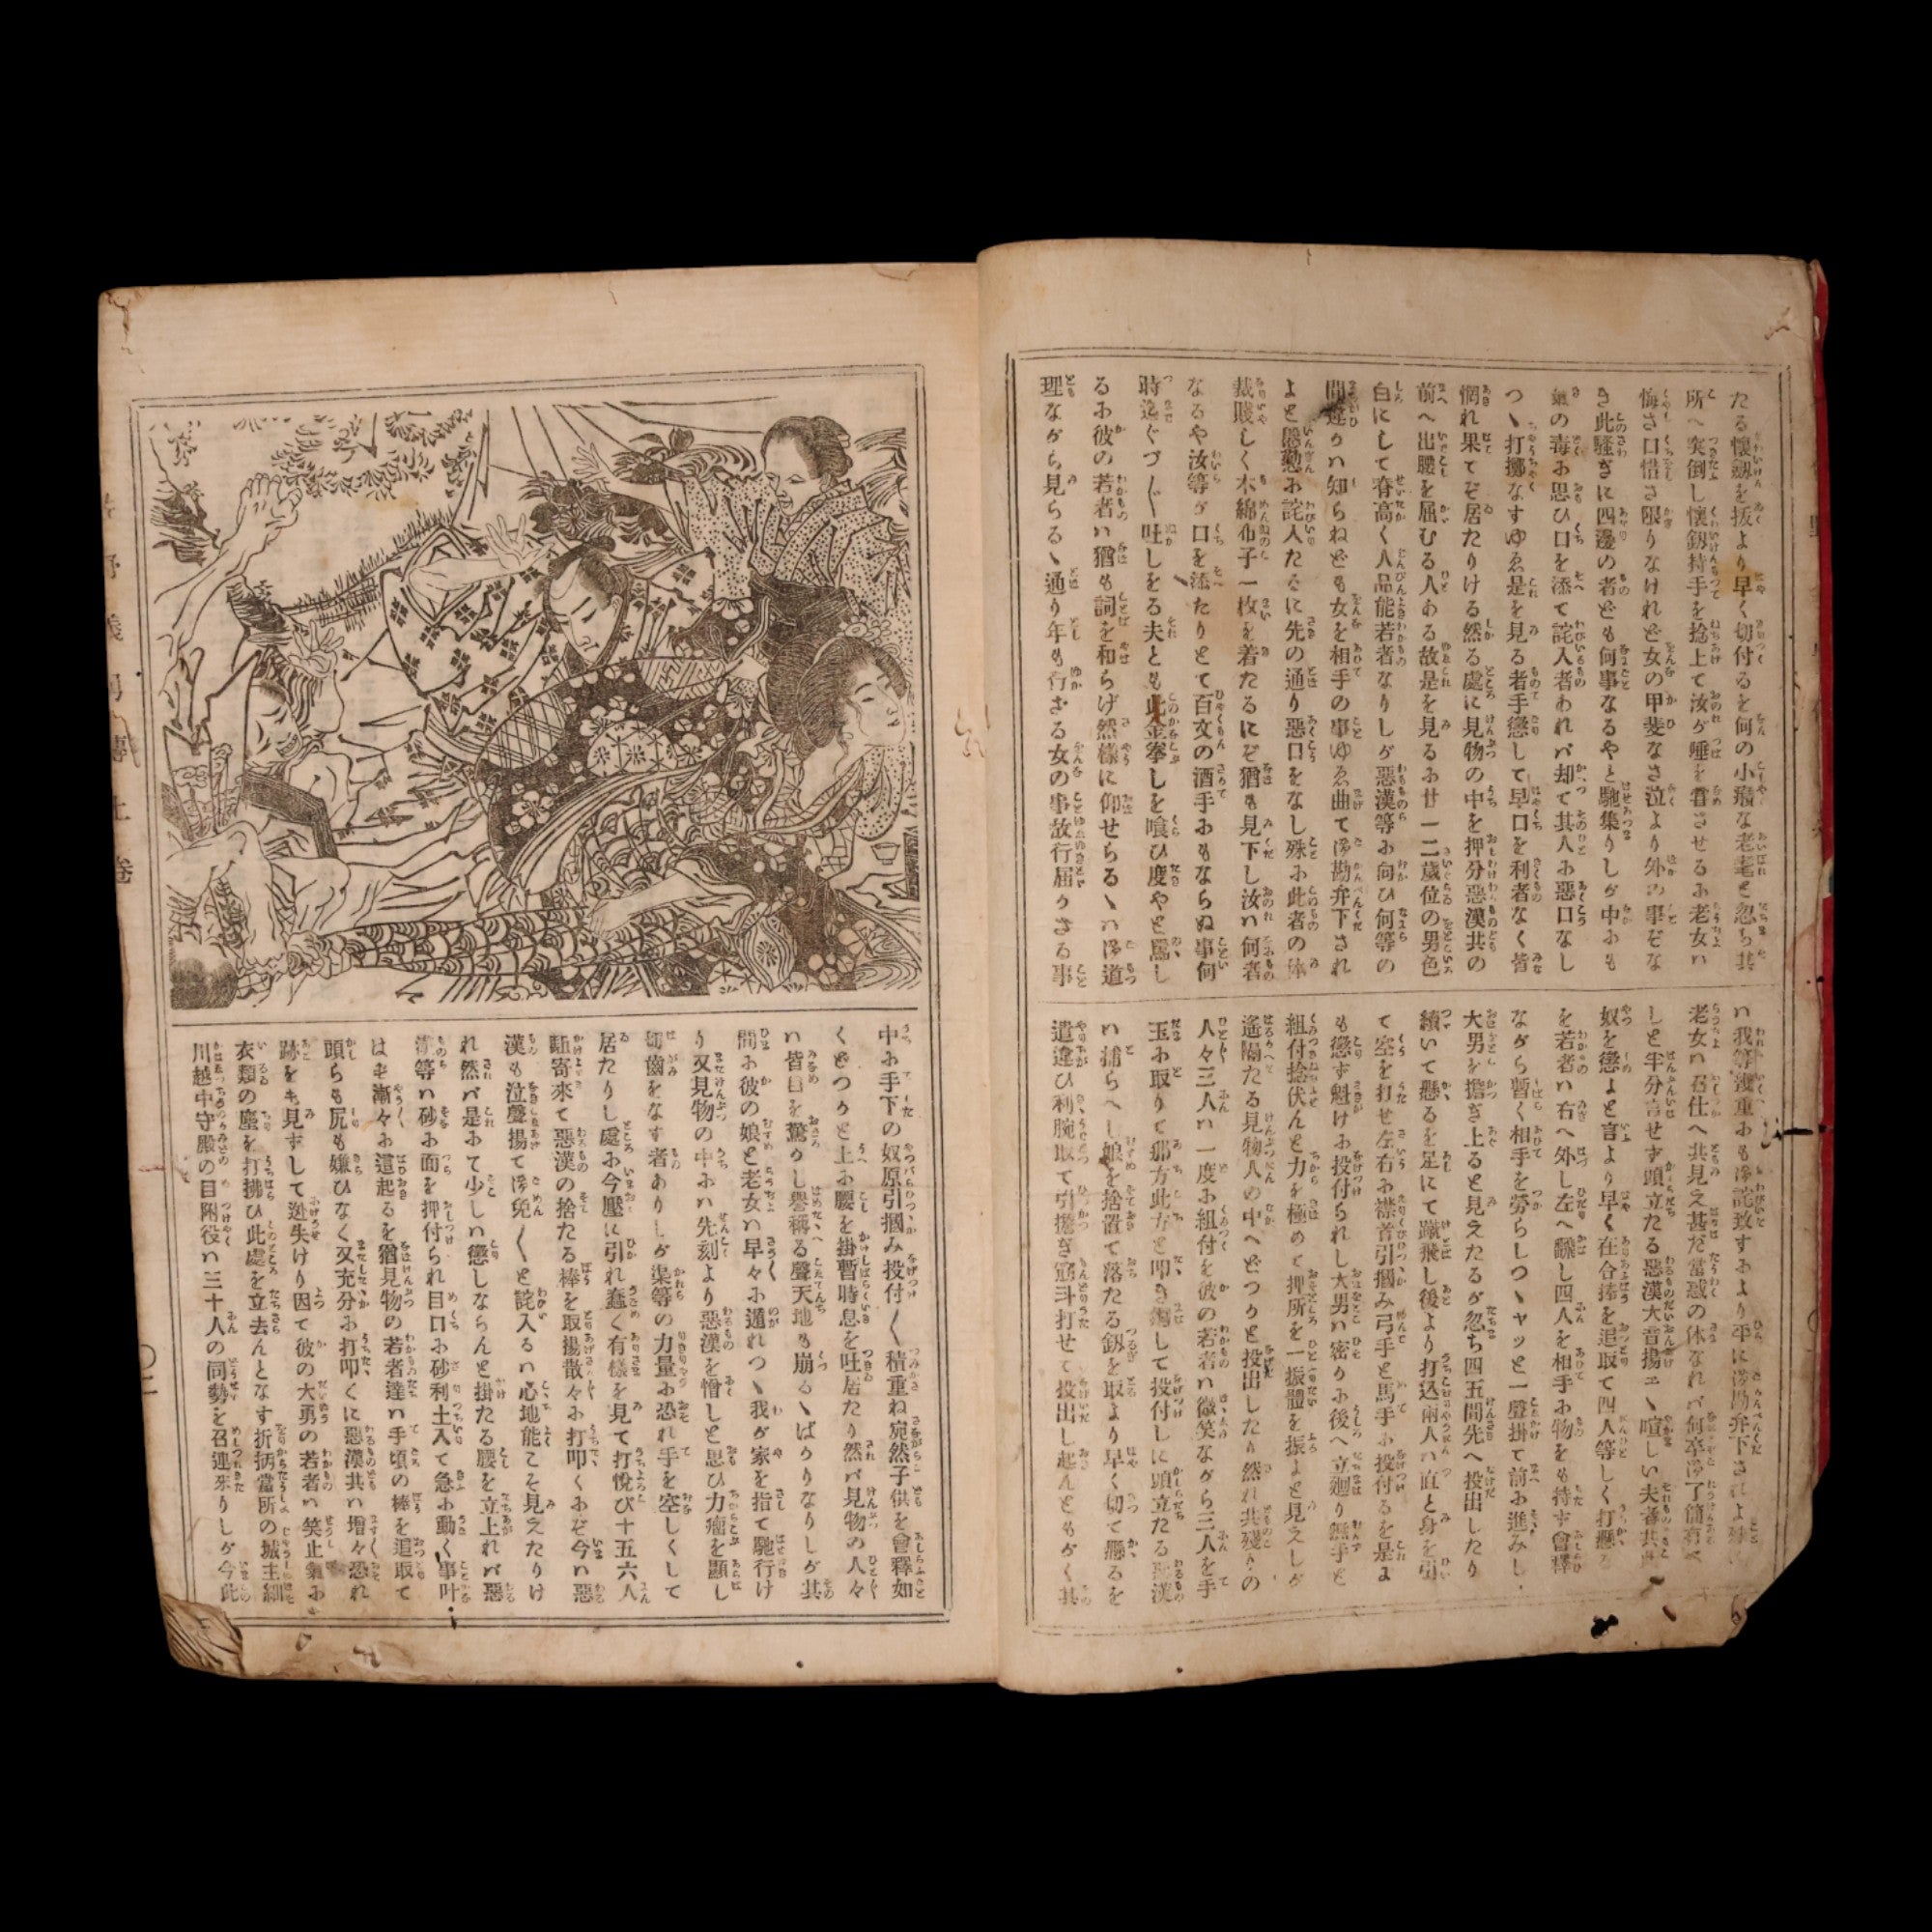 たる懷劔を拔より早く切付るを何の小癪な老耄と忽ち其
所へ突倒し懷劔持手を捻上て汝が唾を甞させるに老女ハ
悔さ口惜さ限りなけれど女の甲斐なさ泣より外の事ぞな
き此騷ぎに四邊の者ども何事なるやと馳集りしが中にも
氣の毒に思ひ口を添て詫入者あれバ却て其人に惡口なし
つゝ打擲なすゆゑ是を見る者手懲して早口を利者なく皆
惘れ果てぞ居たりける然る處に見物の中を押分惡漢共の
前へ出腰を屈むる人ある故是を見るに廿一二歳位の男色
白にして脊高く人品能若者なりしが惡漢等に向ひ何等の
間違かハ知らねども女を相手の事ゆゑ曲て御勘弁下され
よと慇懃に詫入たるに先の通り惡口をなし殊に此者の体
裁賤しく木綿布子一枚を着たるにぞ猶も見下し汝ハ何者
なるや汝等が口を添たりとて百文の酒手にもならぬ事何
時迄ぐづ〱吐しをる夫とも此金拳しを喰ひ度やと罵し
るに彼の若者ハ猶も詞を和らげ然樣に仰せらるゝハ御道
理ながら見らるゝ通り年も行ざる女の事故行届かざる事
ハ我等幾重にも御詫致すにより平に御勘弁下されよ殊に
老女ハ召仕へ共見え甚だ當惑の休なれバ何卒御了簡
しと半分言せず頭立たる惡漢大音揚エヽ喧しい夫審共
奴を懲よと言より早く在合捧を追取て四人等しく打懸る
を若者ハ右へ外し左へ飜し四人を相手に物をも持ず會釋
ながら暫く相手を勞らしつゝヤッと一聲掛て前に進みし
大男を擔ぎ上ると見えたるが忽ち四五間先へ投出したり
續いて懸るを足にて蹴飛し後より打込兩人ハ直と身を引
て空を打せ左右に襟首引摑み弓手と馬手に投付るを是に
も懲ず魁けに投付られし大男ハ密かに後へ立廻り無手と
組付捻伏んと力を極めて押所を一振體を振よと見えしが
遙隔たる見物人の中へどつかと投出したり然れ共殘りの
人々三人ハ一度に組付を彼の若者ハ微笑ながら三人を手
玉に取りて那方此方と叩き廻して投付しに頭立たる惡漢
ハ捕らへし娘を捨置て落たる劔を取より早く切て懸るを
遣違ひ利腕取て引擔ぎ筋斗打せて投出し起んともがく其
中に手下の奴原引摑み投付〱積重ね宛然子供を會釋如
くどつかと上に腰を掛暫時息を吐居たり然バ見物の人々
ハ皆目を驚かし譽稱る聲天地も崩るゝばかりなりしが其
間に彼の娘と老女ハ早々に遁れつゝ我が家を指て馳行け
り又見物の中にハ先刻より惡漢を憎しと思ひ力瘤を顯し
切齒をなす者ありしが渠等の力量に恐れ手を空しくして
居たりし處に今壓に引れ蠢く有樣を見て打悅び十五六人
駈寄來て惡漢の捨たる棒を取揚散々に打叩くにぞ今ハ惡
漢も泣聲揚て御免〱と詫入るハ心地能こそ見えたりけ
れ然バ是にて少しハ懲しならんと掛たる腰を立上れバ惡
漢等ハ砂に面を押付られ目口に砂利土入て急に動く事叶
はず漸々に這起るを猶見物の若者達ハ手頃の棒を追取て
頭らも尻も嫌ひなく又充分に打叩くに惡漢共ハ增々恐れ
跡をも見ずして迯失けり因て彼の大勇の若者ハ笑止氣に
衣類の塵を打拂ひ此處を立去んとなす折柄當所の城主細
川越中守殿の目附役ハ三十人の同勢を召連來りしが今此
義 傳 上 卷